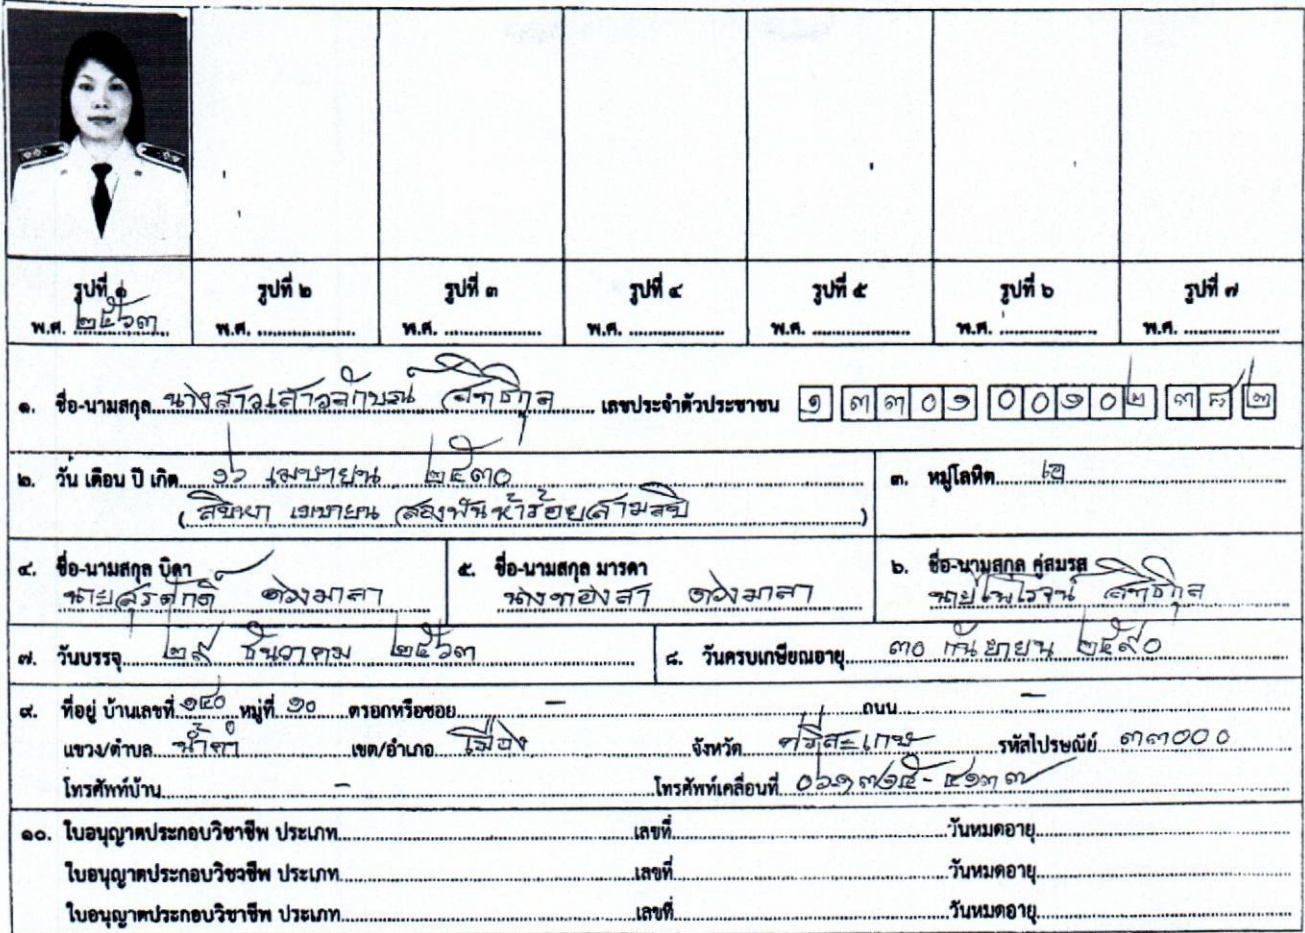 รูปที่ ๑ รูปที่ ๒ รูปที่ ๓ รูปที่ ๔ รูปที่ ๕ รูปที่ ๖ รูปที่ ๗
พ.ศ. ๒๕๖๓ พ.ศ. .................... พ.ศ. .................... พ.ศ. .................... พ.ศ. .................... พ.ศ. .................... พ.ศ. ....................
๑. ชื่อ-นามสกุล นางสาวเสาวลักษณ์ สิทธิกุล เลขประจำตัวประชาชน ๑ ๓๓๐๑ ๐๐๑๐๒ ๓๘ ๒
๒. วัน เดือน ปี เกิด ๑๖ เมษายน ๒๕๓๐ ๓. หมู่โลหิต เอ
( สิบหก เมษายน สองพันห้าร้อยสามสิบ )
๔. ชื่อ-นามสกุล บิดา ๕. ชื่อ-นามสกุล มารดา ๖. ชื่อ-นามสกุล คู่สมรส
นายสุรศักดิ์ ดวงมาลา นางทองสา ดวงมาลา นายไพโรจน์ สิทธิกุล
๗. วันบรรจุ ๒๙ ธันวาคม ๒๕๖๓ ๘. วันครบเกษียณอายุ ๓๐ กันยายน ๒๕๙๐
๙. ที่อยู่ บ้านเลขที่ ๑๔๐ หมู่ที่ ๑๐ ตรอกหรือซอย - ถนน -
แขวง/ตำบล น้ำคำ เขต/อำเภอ เมือง จังหวัด ศรีสะเกษ รหัสไปรษณีย์ ๓๓๐๐๐
โทรศัพท์บ้าน - โทรศัพท์เคลื่อนที่
๑๐. ใบอนุญาตประกอบวิชาชีพ ประเภท.................... เลขที่.................... วันหมดอายุ....................
ใบอนุญาตประกอบวิชวชีพ ประเภท.................... เลขที่.................... วันหมดอายุ....................
ใบอนุญาตประกอบวิชาชีพ ประเภท.................... เลขที่.................... วันหมดอายุ....................